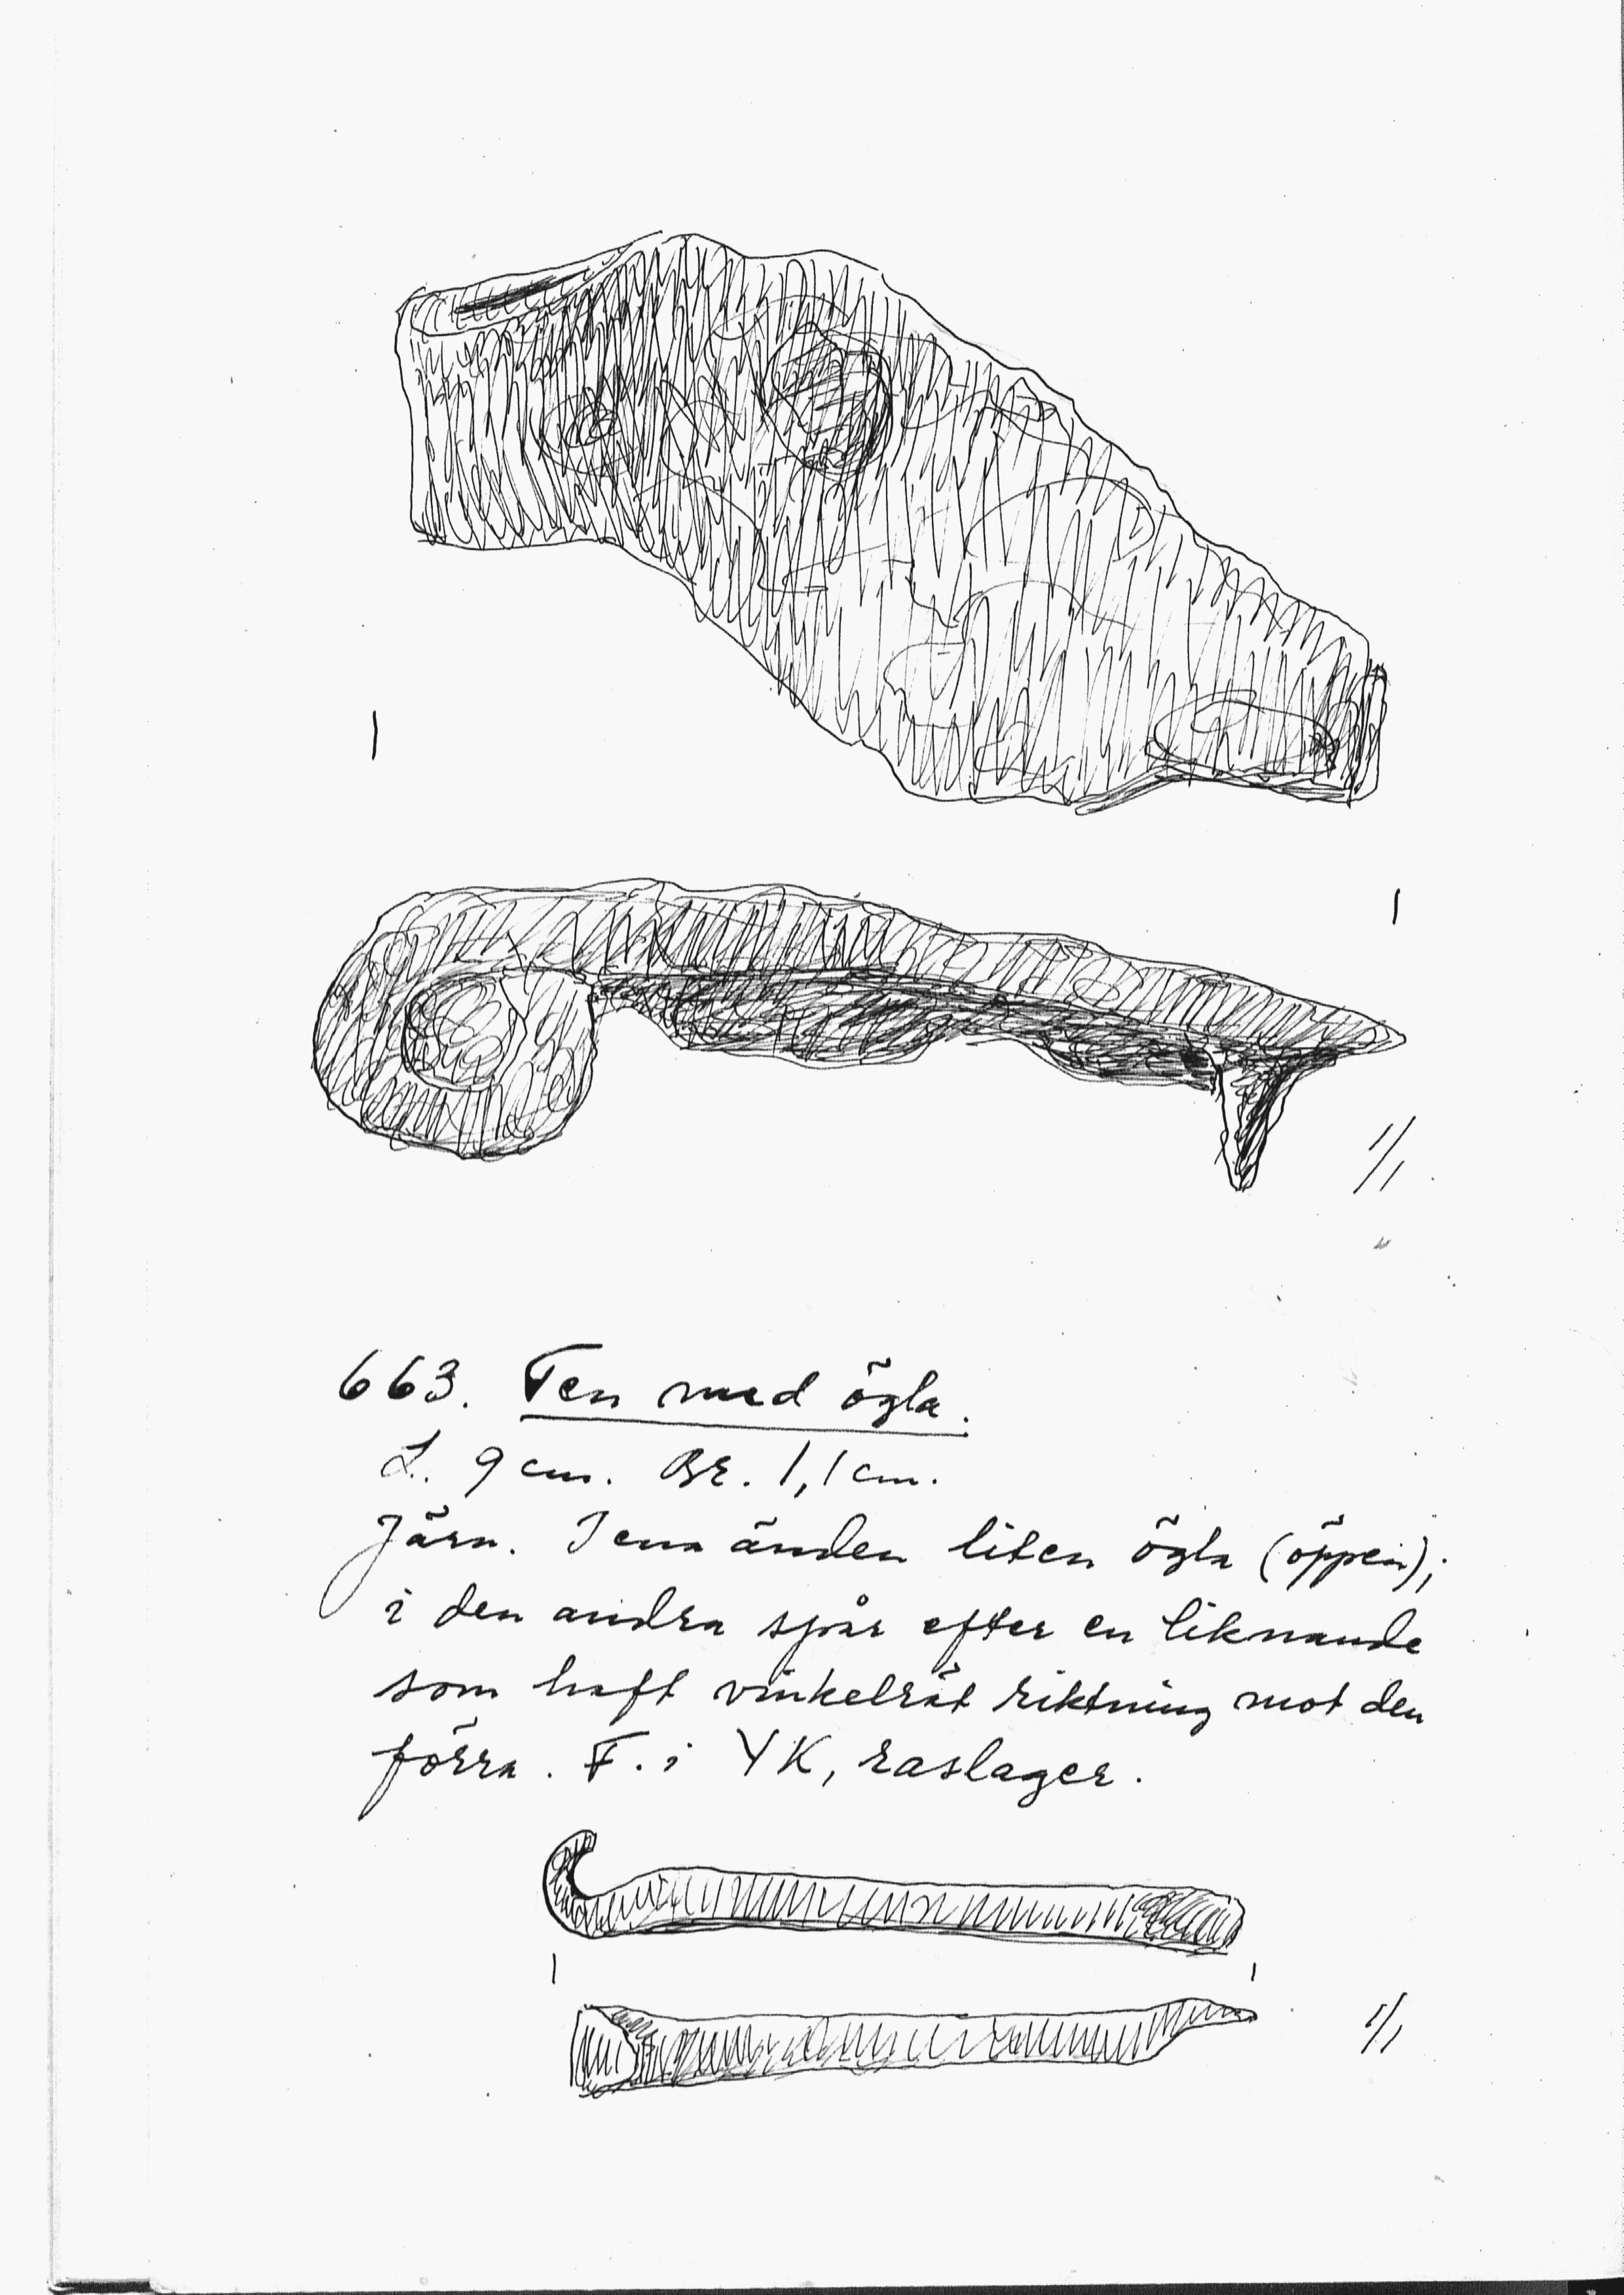 1/1
663. Ten med ögla.
L. 9 cm. Br. 1,1 cm.
Järn. I ena änden liten ögla (öppen);
i den andra spår efter en liknande
som haft vinkelrät riktning mot den
förra. F. i YK, raslager.
1/1